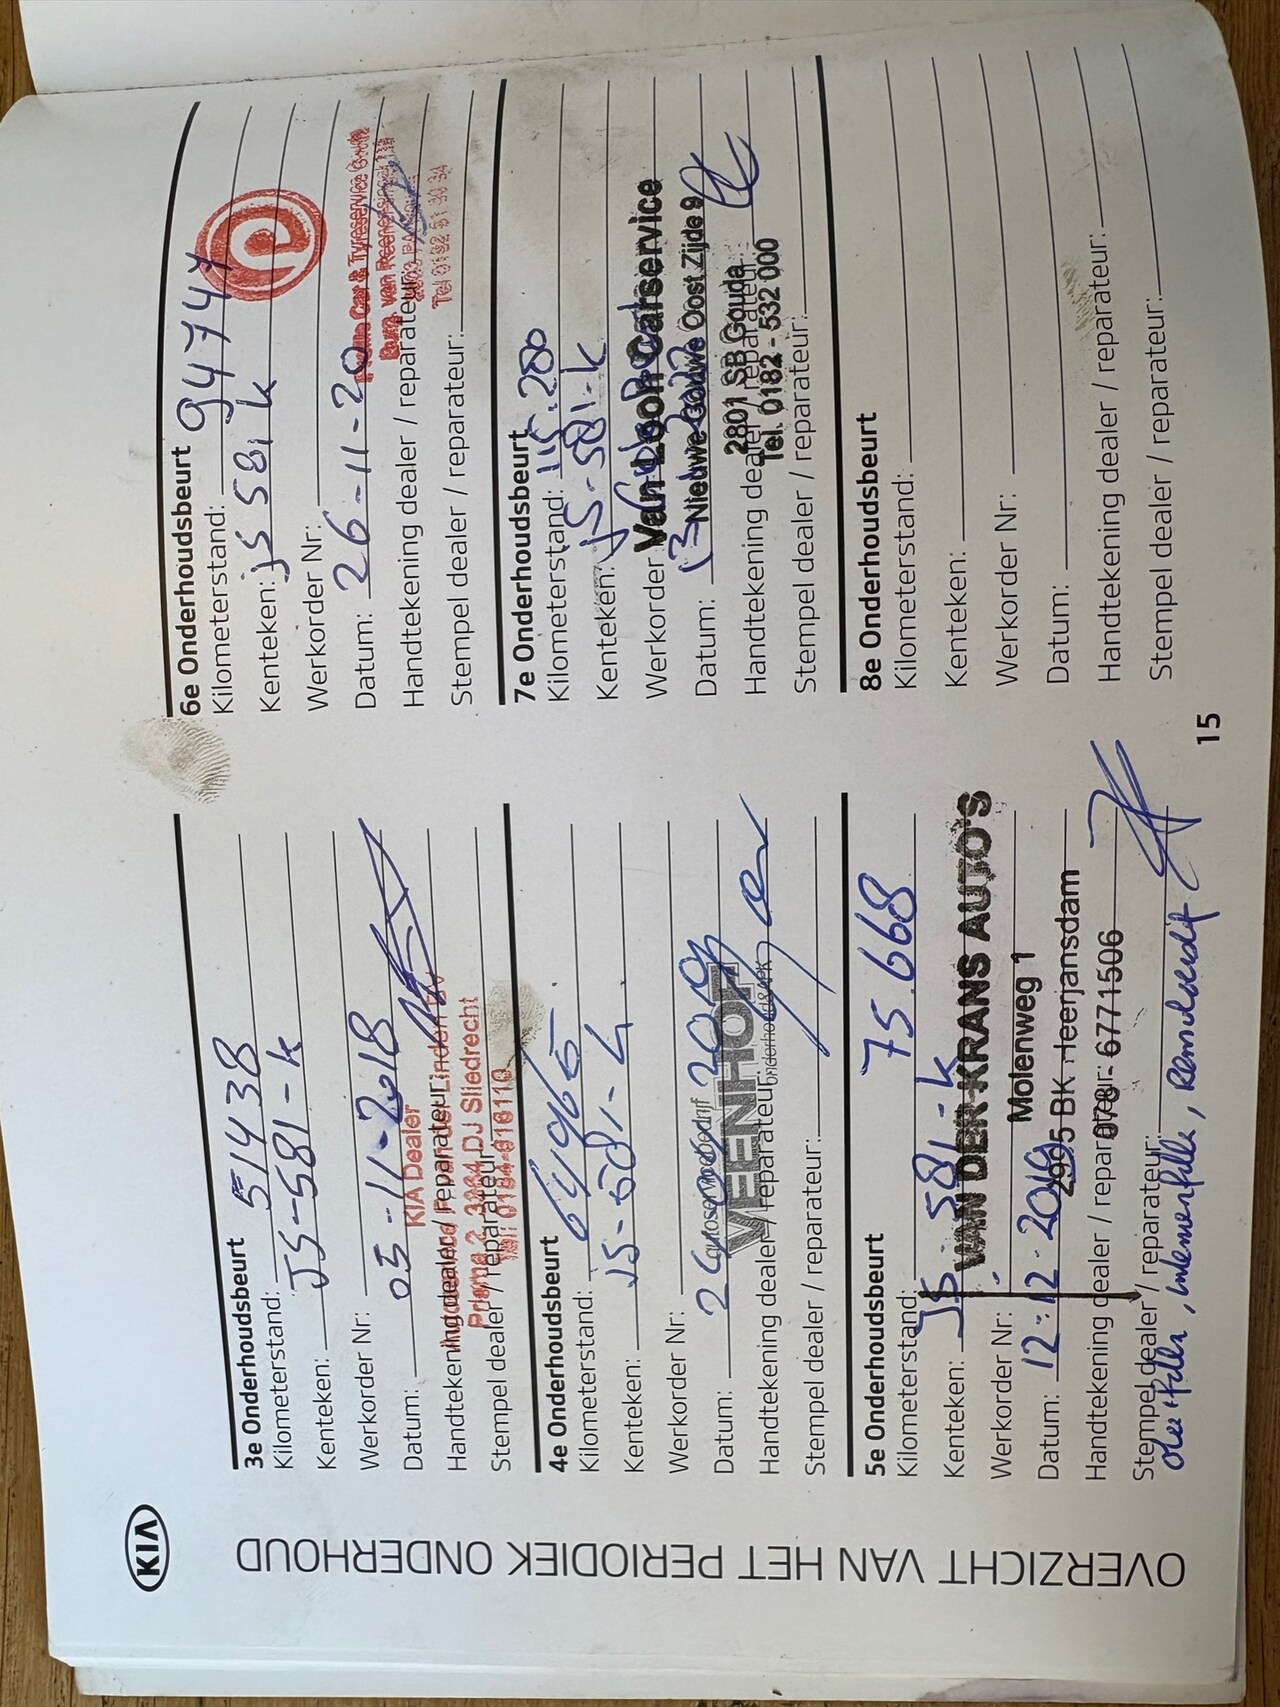 KIA
OVERZICHT VAN HET PERIODIEK ONDERHOUD
3e Onderhoudsbeurt
Kilometerstand: 51438
Kenteken: JS-581-k
Werkorder Nr:
Datum: 05-11-2018
Handtekening dealer / reparateur:
Stempel dealer / reparateur:
KIA Dealer
3364 DJ Sliedrecht
4e Onderhoudsbeurt
Kilometerstand: 64965
Kenteken:
Werkorder Nr:
Datum: 2019
Handtekening dealer / reparateur:
VEENHOF
onderhoud & APK
Stempel dealer / reparateur:
5e Onderhoudsbeurt
Kilometerstand: 75.668
Kenteken: JS-581-k
VAN DER KRANS AUTO'S
Werkorder Nr:
Molenweg 1
Datum: 12-12-2019
2995 BK Heerjansdam
Handtekening dealer / reparateur:
078 - 6771506
Stempel dealer / reparateur:
6e Onderhoudsbeurt
Kilometerstand: 94747
Kenteken: js 581 k
e
Werkorder Nr:
Datum: 26-11-20
Car & Tyreservice
Handtekening dealer / reparateur:
Stempel dealer / reparateur:
Tel 0182 51 30 34
7e Onderhoudsbeurt
Kilometerstand: 115.280
Kenteken: JS-581-k
Werkorder
Van Loon Carservice
Datum:
Nieuwe Gouwe Oost Zijde 9
2801 SB Gouda
Handtekening dealer / reparateur:
Tel. 0182 - 532 000
Stempel dealer / reparateur:
8e Onderhoudsbeurt
Kilometerstand:
Kenteken:
Werkorder Nr:
Datum:
Handtekening dealer / reparateur:
Stempel dealer / reparateur:
15